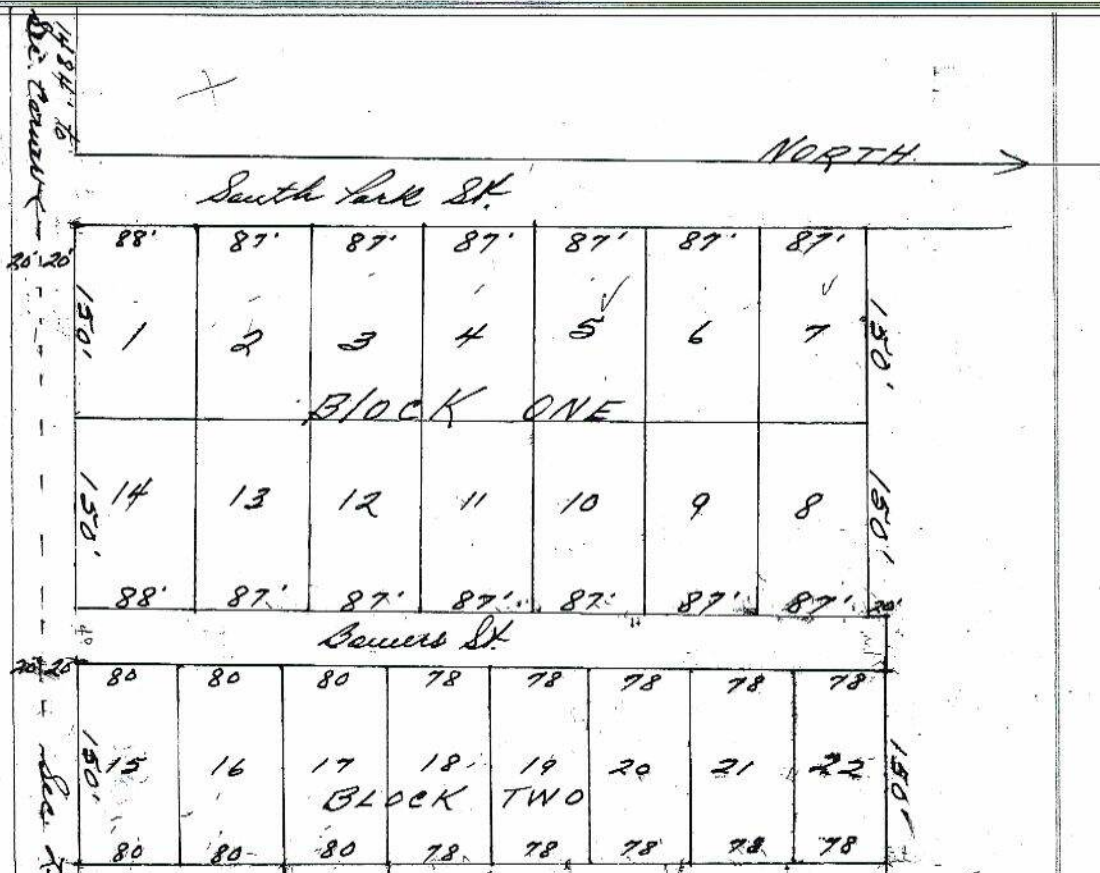 1484' to
Sec. Corner
NORTH
South Park St.
88' 87' 87' 87' 87' 87' 87'
20' 20'
150' 1 2 3 4 5 6 7 150'
BLOCK ONE
150' 14 13 12 11 10 9 8 150'
88' 87' 87' 87' 87' 87' 87' 20'
40
Bowers St.
20' 20'
80 80 80 78 78 78 78 78
150' 15 16 17 18 19 20 21 22 150'
BLOCK TWO
80 80 80 78 78 78 78 78
Sec.